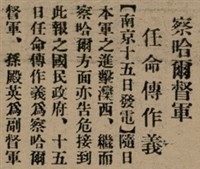 察哈爾督軍
任命傅作義
【南京十五日發電】隨日
本軍之進擊灤西、繼而
察哈爾方面亦告危接到
此報之國民政府、十五
日任命傅作義爲察哈爾
督軍、孫殿英爲副督軍